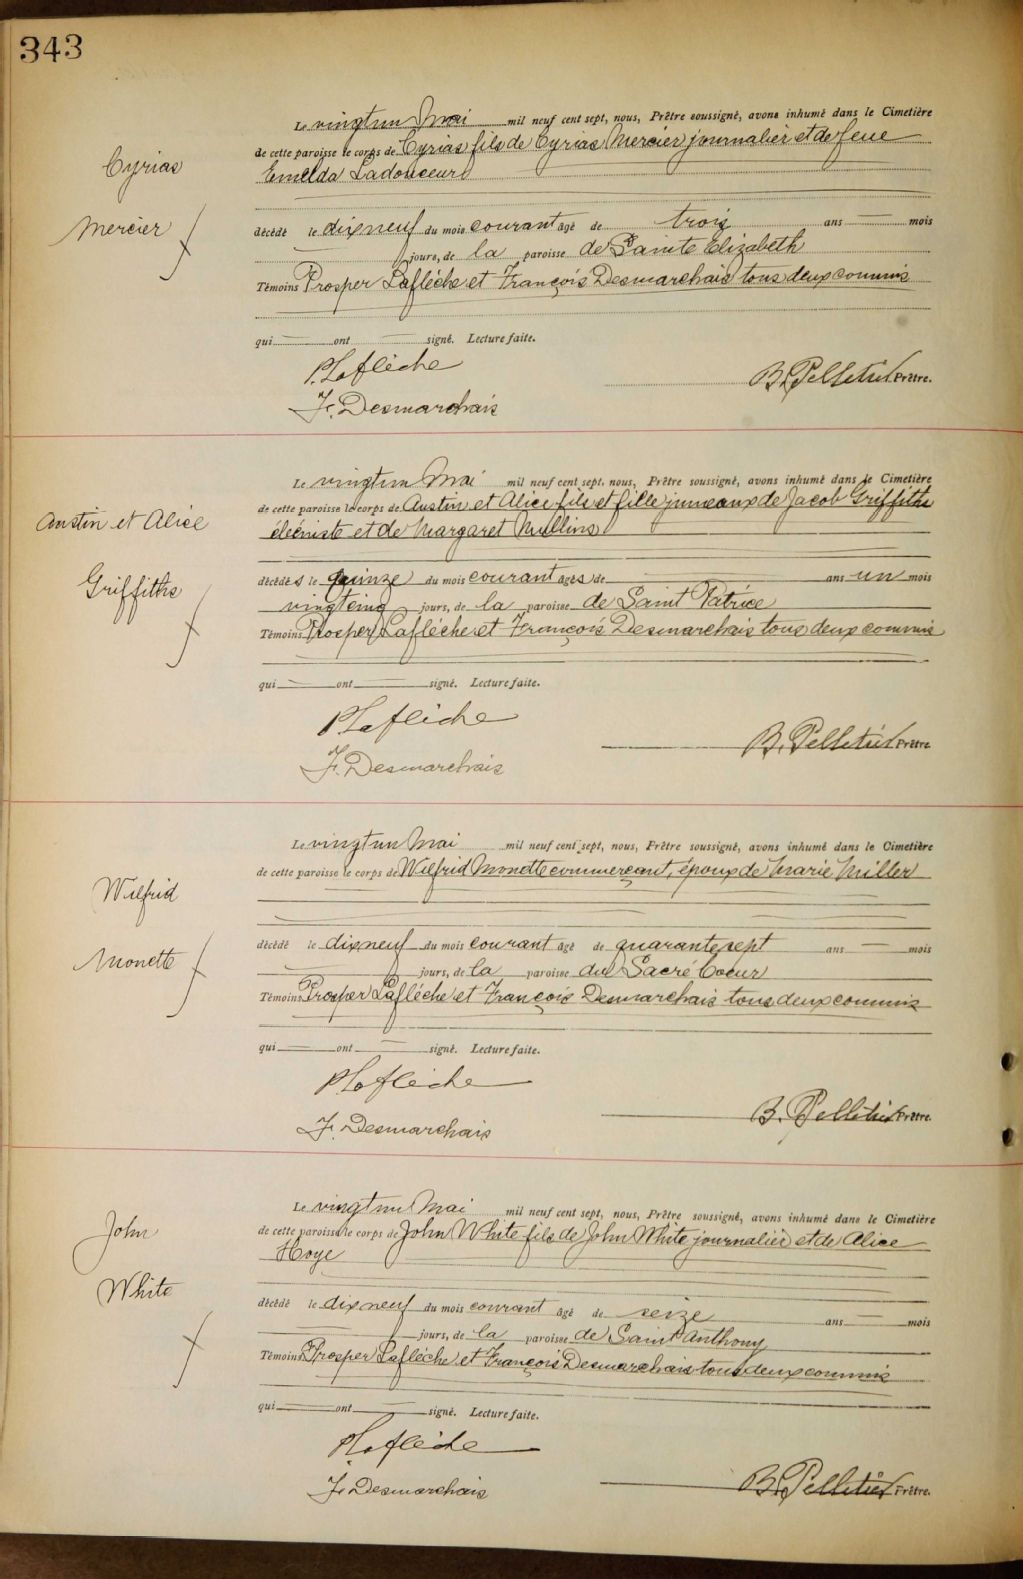 343
Le vingt un Mai mil neuf cent sept, nous, Prêtre soussigné, avons inhumé dans le Cimetière
de cette paroisse le corps de Cyrias fils de Cyrias Mercier journalier et de feue
Emelda Ladouceur
Cyrias
Mercier
décédé le dix neuf du mois courant âgé de trois ans — mois
jours, de la paroisse de Sainte Elizabeth
Témoins Prosper Laflèche et François Desmarchais tous deux commis
qui — ont — signé. Lecture faite.
P. Laflèche
B. Pelletier Prêtre.
F. Desmarchais
Le vingt un Mai mil neuf cent sept, nous, Prêtre soussigné, avons inhumé dans le Cimetière
de cette paroisse le corps de Austin et Alice fils et fille jumeaux de Jacob Griffiths
et de Margaret Mullins
Austin et Alice
Griffiths
décédés le quinze du mois courant âgés de — ans un mois
vingt cinq jours, de la paroisse de Saint Patrice
Témoins Prosper Laflèche et François Desmarchais tous deux commis
qui — ont — signé. Lecture faite.
P Laflèche
B. Pelletier Prêtre.
F. Desmarchais
Le vingt un Mai mil neuf cent sept, nous, Prêtre soussigné, avons inhumé dans le Cimetière
de cette paroisse le corps de Wilfrid Monette commerçant, époux de Marie Miller
Wilfrid
Monette
décédé le dix neuf du mois courant âgé de quarante sept ans — mois
jours, de la paroisse du Sacré Coeur
Témoins Prosper Laflèche et François Desmarchais tous deux commis
qui — ont — signé. Lecture faite.
P Laflèche
B. Pelletier Prêtre.
F. Desmarchais
Le vingt un Mai mil neuf cent sept, nous, Prêtre soussigné, avons inhumé dans le Cimetière
de cette paroisse le corps de John White fils de John White journalier et de Alice
Hoye
John
White
décédé le dix neuf du mois courant âgé de seize ans — mois
jours, de la paroisse de Saint Anthony
Témoins Prosper Laflèche et François Desmarchais tous deux commis
qui — ont — signé. Lecture faite.
P Laflèche
B. Pelletier Prêtre.
F. Desmarchais